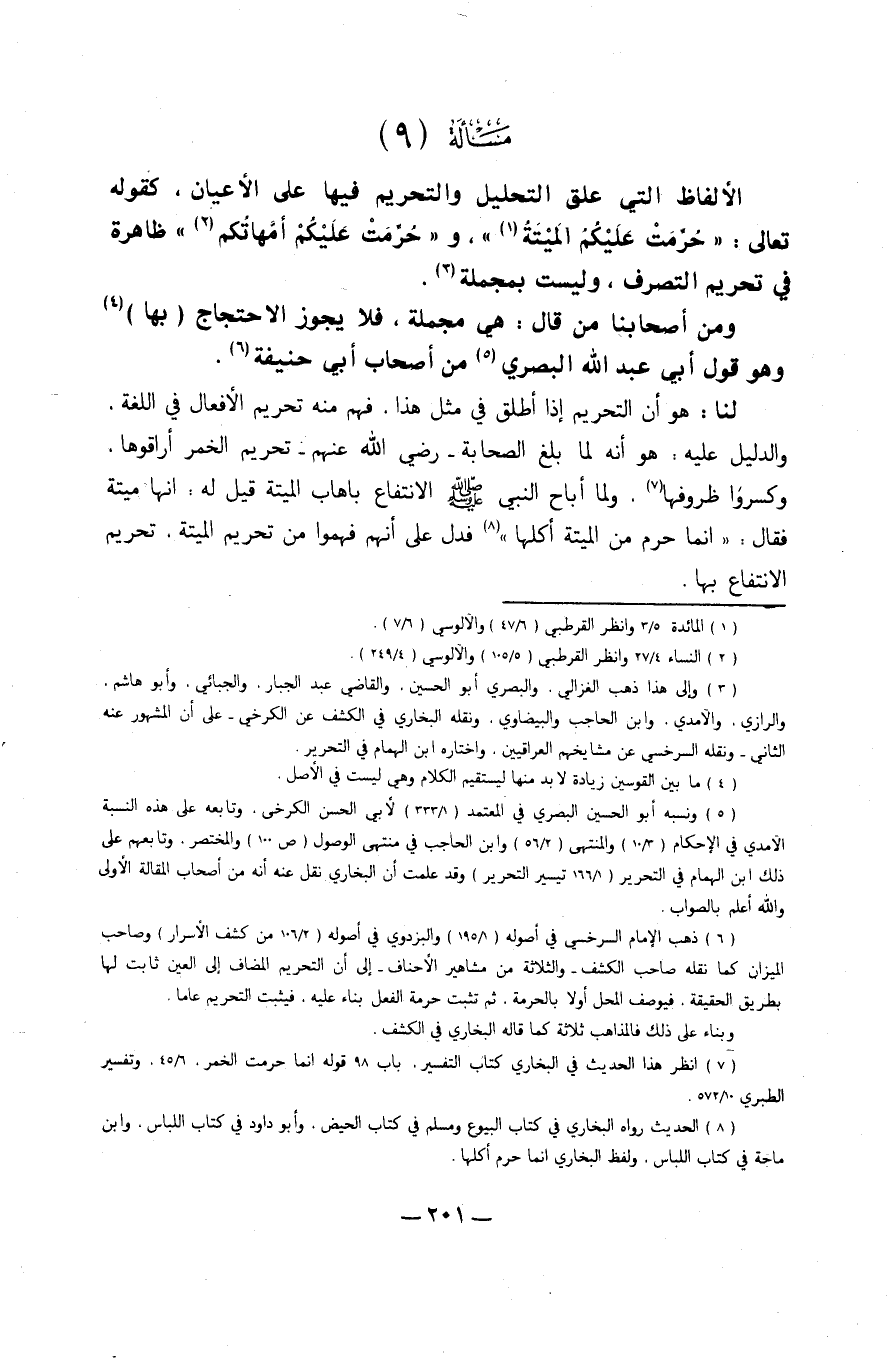 مسألة (٩)
الألفاظ التي علق التحليل والتحريم فيها على الأعيان ، كقوله
تعالى : « حُرِّمَتْ عَلَيْكُمُ المَيْتَةُ (١) » ، و « حُرِّمَتْ عَلَيْكُمْ أمَّهاتُكم (٢) » ظاهرة
في تحريم التصرف ، وليست بمجملة (٣) .
ومن أصحابنا من قال : هي مجملة ، فلا يجوز الاحتجاج ( بها ) (٤)
وهو قول أبي عبد الله البصري (٥) من أصحاب أبي حنيفة (٦) .
لنا : هو أن التحريم إذا أطلق في مثل هذا ، فهم منه تحريم الأفعال في اللغة ،
والدليل عليه : هو أنه لما بلغ الصحابة ـ رضي الله عنهم ـ تحريم الخمر أراقوها ،
وكسروُا ظروفها (٧) ، ولما أباح النبي ﷺ الانتفاع باهاب الميتة قيل له : انها ميتة
فقال : « انما حرم من الميتة أكلها » (٨) فدل على أنهم فهموا من تحريم الميتة ، تحريم
الانتفاع بها .
( ١ ) المائدة ٣/٥ وانظر القرطبي ( ٤٧/٦ ) والآلوسي ( ٧/٦ ) .
( ٢ ) النساء ٢٧/٤ وانظر القرطبي ( ١٠٥/٥ ) والآلوسي ( ٢٤٩/٤ ) .
( ٣ ) وإلى هذا ذهب الغزالي ، والبصري أبو الحسين ، والقاضي عبد الجبار ، والجبائي ، وأبو هاشم ،
والرازي ، والآمدي ، وابن الحاجب والبيضاوي ، ونقله البخاري في الكشف عن الكرخي ـ على أن المشهور عنه
الثاني ـ ونقله السرخسي عن مشايخهم العراقيين ، واختاره ابن الهمام في التحرير .
( ٤ ) ما بين القوسين زيادة لا بد منها ليستقيم الكلام وهي ليست في الأصل .
( ٥ ) ونسبه أبو الحسين البصري في المعتمد ( ٣٣٣/١ ) لأبي الحسن الكرخي ، وتابعه على هذه النسبة
الآمدي في الإحكام ( ١٠/٣ ) والمنتهى ( ٥٦/٢ ) وابن الحاجب في منتهى الوصول ( ص ١٠٠ ) والمختصر ، وتابعهم على
ذلك ابن الهمام في التحرير ( ١٦٦/١ تيسير التحرير ) وقد علمت أن البخاري نقل عنه أنه من أصحاب المقالة الأولى
والله أعلم بالصواب .
( ٦ ) ذهب الإمام السرخسي في أصوله ( ١٩٥/١ ) والبزدوي في أصوله ( ١٠٦/٢ من كشف الأسرار ) وصاحب
الميزان كما نقله صاحب الكشف ـ والثلاثة من مشاهير الأحناف ـ إلى أن التحريم المضاف إلى العين ثابت لها
بطريق الحقيقة ، فيوصف المحل أولا بالحرمة ، ثم تثبت حرمة الفعل بناء عليه ، فيثبت التحريم عاما .
وبناء على ذلك فالمذاهب ثلاثة كما قاله البخاري في الكشف .
( ٧ ) انظر هذا الحديث في البخاري كتاب التفسير ، باب ٩٨ قوله انما حرمت الخمر ، ٤٥/٦ ، وتفسير
الطبري ٥٧٢/١٠ .
( ٨ ) الحديث رواه البخاري في كتاب البيوع ومسلم في كتاب الحيض ، وأبو داود في كتاب اللباس ، وابن
ماجة في كتاب اللباس ، ولفظ البخاري انما حرم أكلها .
— ٢٠١ —